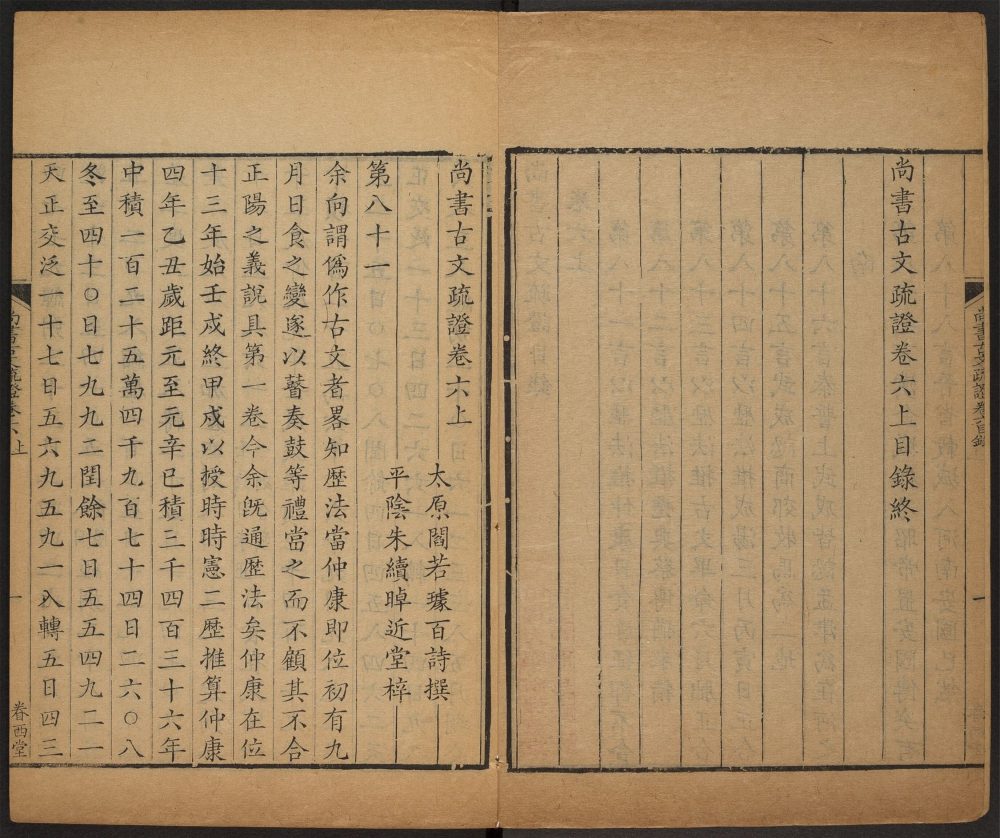 尚書古文疏證卷六上目錄終
尚書古文疏證卷六上
太原閻若璩百詩撰
平陰朱續晫近堂梓
第八十一
余向謂僞作古文者畧知歷法當仲康即位初有九
月日食之變遂以瞽奏鼓等禮當之而不顧其不合
正陽之義說具第一卷今余旣通歷法矣仲康在位
十三年始壬戌終甲戌以授時時憲二歷推算仲康
四年乙丑歲距元至元辛巳積三千四百三十六年
中積一百二十五萬四千九百七十四日二六〇八
冬至四十〇日七九九二閏餘七日五五四九二一
天正交泛一十七日五六九五九一入轉五日四三
一
眷西堂